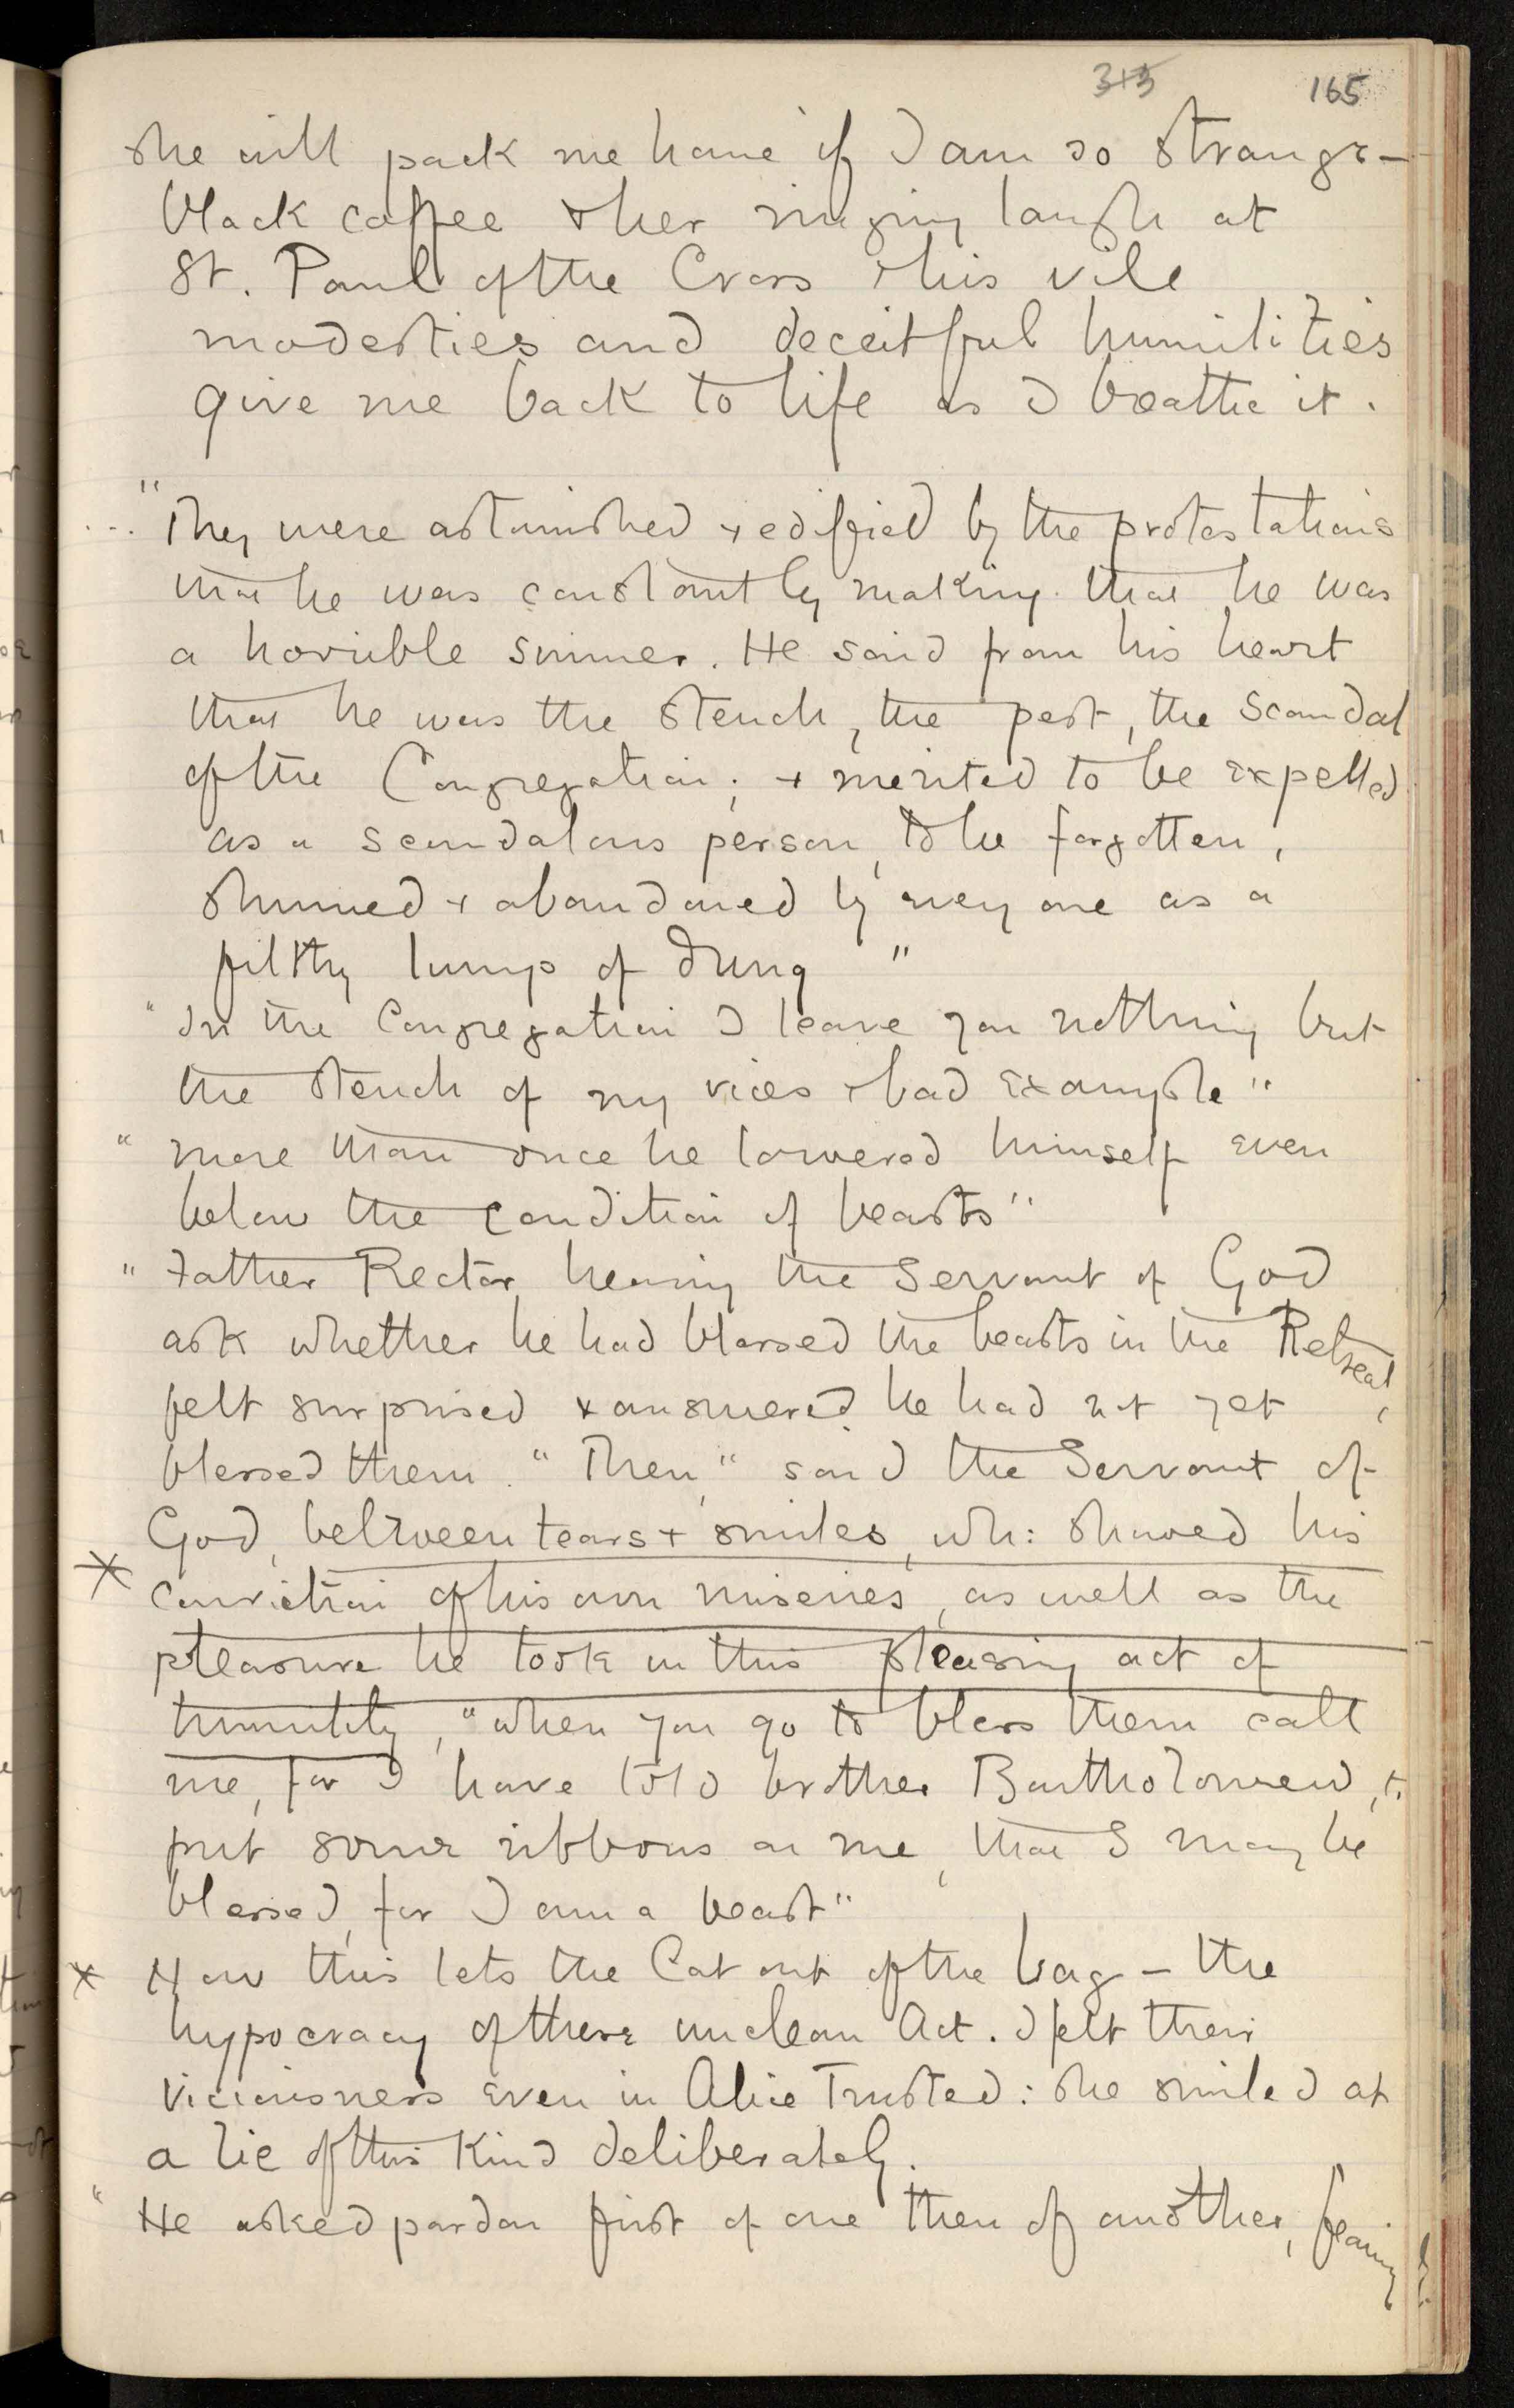 313 165
she will pack me home if I am so strange –
black coffee & her ringing laugh at
St. Paul of the Cross & his vile
modesties and deceitful humilities
give me back to life as I breathe it.
... "They were astonished & edified by the protestations
that he was constantly making that he was
a horrible sinner. He said from his heart
that he was the stench, the pest, the scandal
of the Congregation; & merited to be expelled
as a scandalous person, to be forgotten,
shunned & abandoned by every one as a
filthy lump of dung"
"In the Congregation I leave you nothing but
the stench of my vices & bad example"
"more than once he lowered himself even
below the condition of beasts"
"Father Rector, hearing the Servant of God
ask whether he had blessed the beasts in the Retreat,
felt surprised & answered he had not yet
blessed them. "Then," said the Servant of
God, between tears & smiles, wh: showed his
* conviction of his own miseries, as well as the
pleasure he took in this pleasing act of
humility, "when you go to bless them call
me, for I have told brother Bartholomew, to
put some ribbons on me, that I may be
blessed, for I am a beast"
* How this lets the Cat out of the bag – the
hypocracy of these unclean Act. I felt their
viciousness even in Alice Trusted: she smiled at
a lie of this kind deliberately.
"He asked pardon first of one then of another, fearing